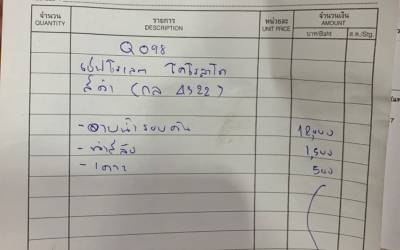 จำนวน รายการ หน่วยละ จำนวนเงิน
QUANTITY DESCRIPTION UNIT PRICE AMOUNT
บาท/Baht ส.ต./Stg.
Q098
เชฟโรเลต โคโรลาโด
สีดำ (กล 4522)
- อาบน้ำรอบคัน
- ทำสีลัง 1,500
- เดาว 500